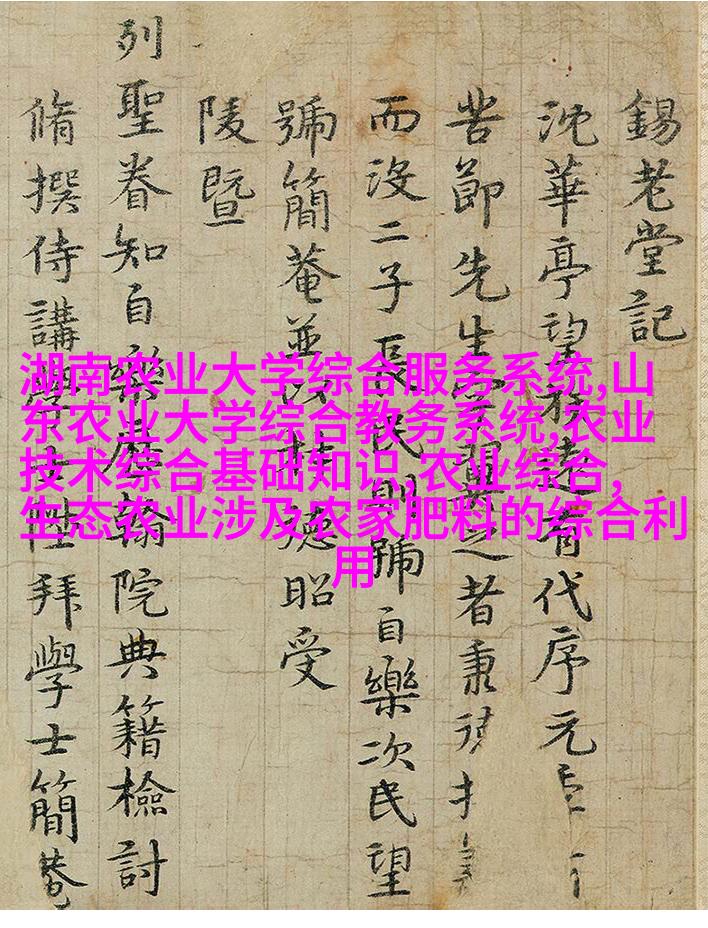 錫老堂記
沈華亭望 有代序元
苦節先生學 之者秉
而沒二子長民則號自樂次民望
號簡菴並以 德昭受
陵暨
列聖眷知自樂歷翰院典籍檢討
脩撰侍講學士陞拜學士簡菴
湖南农业大学综合服务系统,山
东农业大学综合教务系统,农业
技术综合基础知识,农业综合,
生态农业涉及农家肥料的综合利
用